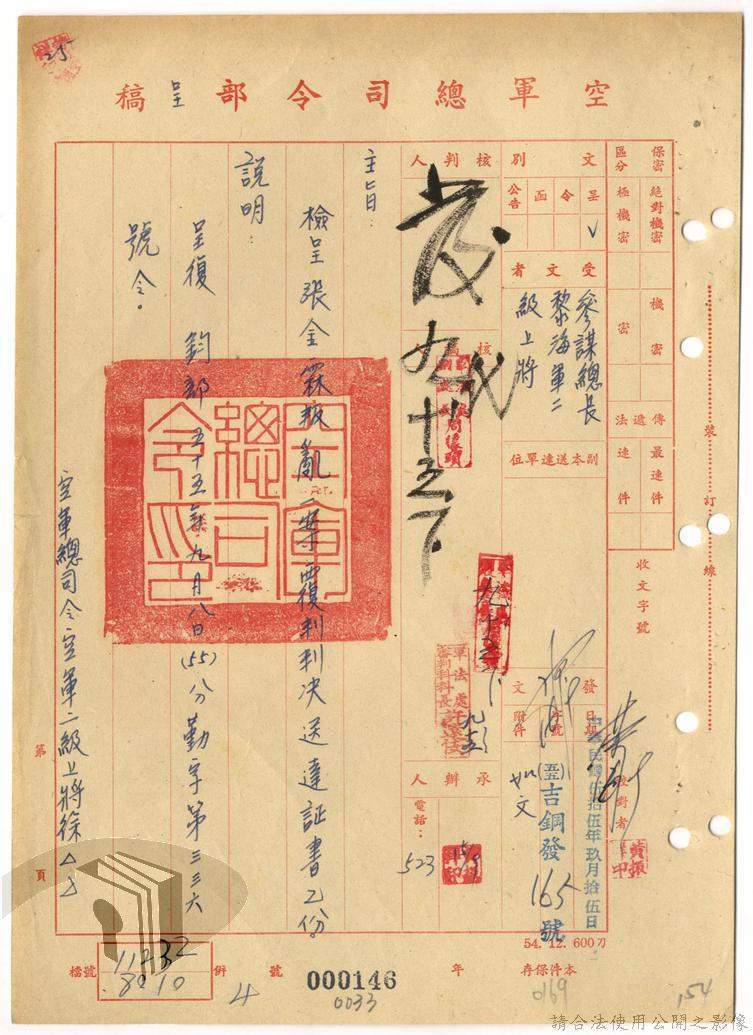 空軍總司令部呈稿
保密區分
絕對機密
極機密
機密
密
傳遞法
最速件
速件
收文字號
文別
呈
令
函
公告
✓
受文者
參謀總長
黎海軍二
級上將
副本送達單位
發文
日期
中華民國伍拾伍年玖月拾伍日
字號
(55)吉鋼發165號
附件
如文
校對者
核判人
發
九、十五、下
承辦人
電話：
523
軍法處
審判科科長
主旨：
檢呈張金霖叛亂一案覆判判決送達証書乙份。
說明：
呈復 鈞部五十五年九月八日(55)分勤字第三三六
號令。
空軍總司令空軍二級上將徐△△
空軍總司令印
裝訂線
第 頁
檔號
11232
8010
併 4 號
000146
0033
年
本件保存
54.12.600刀
0169
154
25
請合法使用公開之影像